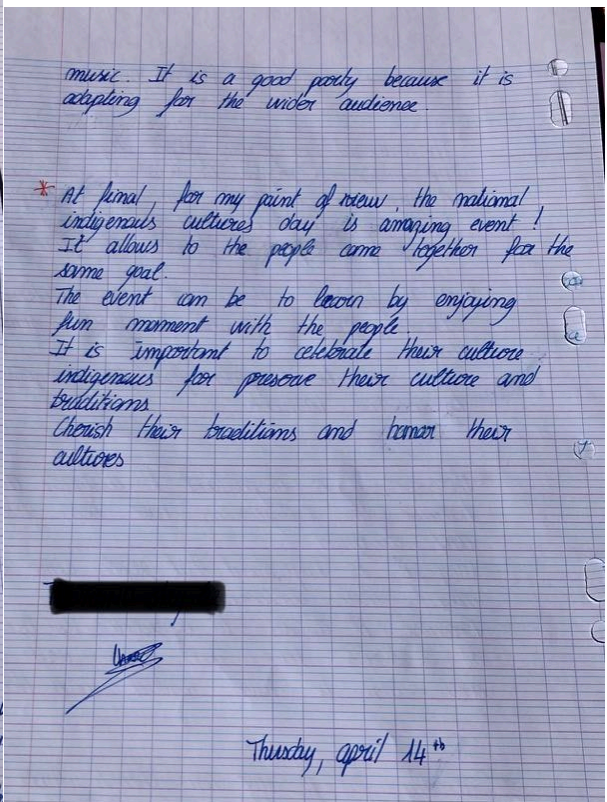 music. It is a good party because it is
adapting for the wider audience.
* At final, for my point of view, the national
indigenous cultures day is amazing event !
It allows to the people come together for the
same goal.
The event can be to learn by enjoying
fun moment with the people.
It is important to celebrate their culture
indigenous for preserve their culture and
traditions
Cherish their traditions and honor their
cultures
Thursday, april 14th